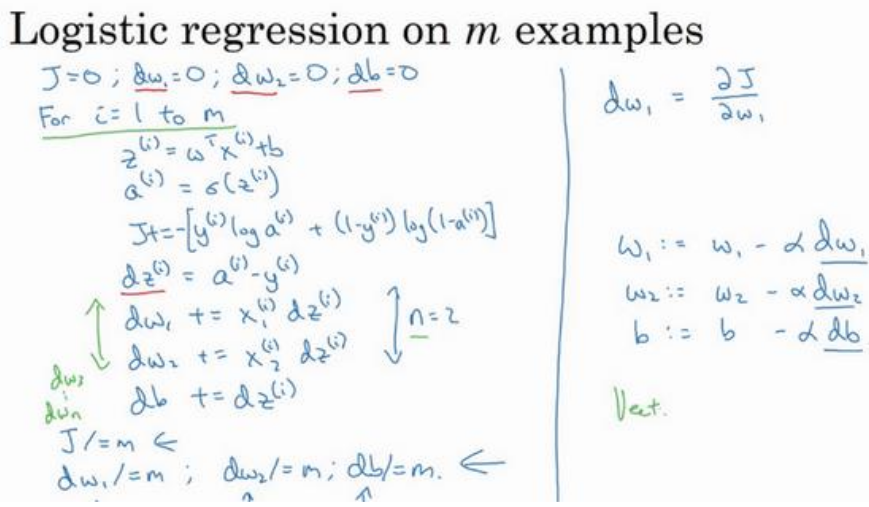 Logistic regression on m examples
J=0 ; dw₁=0 ; dw₂=0 ; db=0
For i=1 to m
z⁽ⁱ⁾ = ωᵀx⁽ⁱ⁾+b
a⁽ⁱ⁾ = σ(z⁽ⁱ⁾)
J+=-[y⁽ⁱ⁾ log a⁽ⁱ⁾ + (1-y⁽ⁱ⁾) log(1-a⁽ⁱ⁾)]
dz⁽ⁱ⁾ = a⁽ⁱ⁾-y⁽ⁱ⁾
dw₁ += x₁⁽ⁱ⁾ dz⁽ⁱ⁾
dw₂ += x₂⁽ⁱ⁾ dz⁽ⁱ⁾
n=2
db += dz⁽ⁱ⁾
dw₃
⋮
dwₙ
J/=m ←
dw₁/=m ; dw₂/=m ; db/=m. ←
dw₁ = ∂J/∂w₁
w₁ := w₁ - α dw₁
w₂ := w₂ - α dw₂
b := b - α db
Vect.